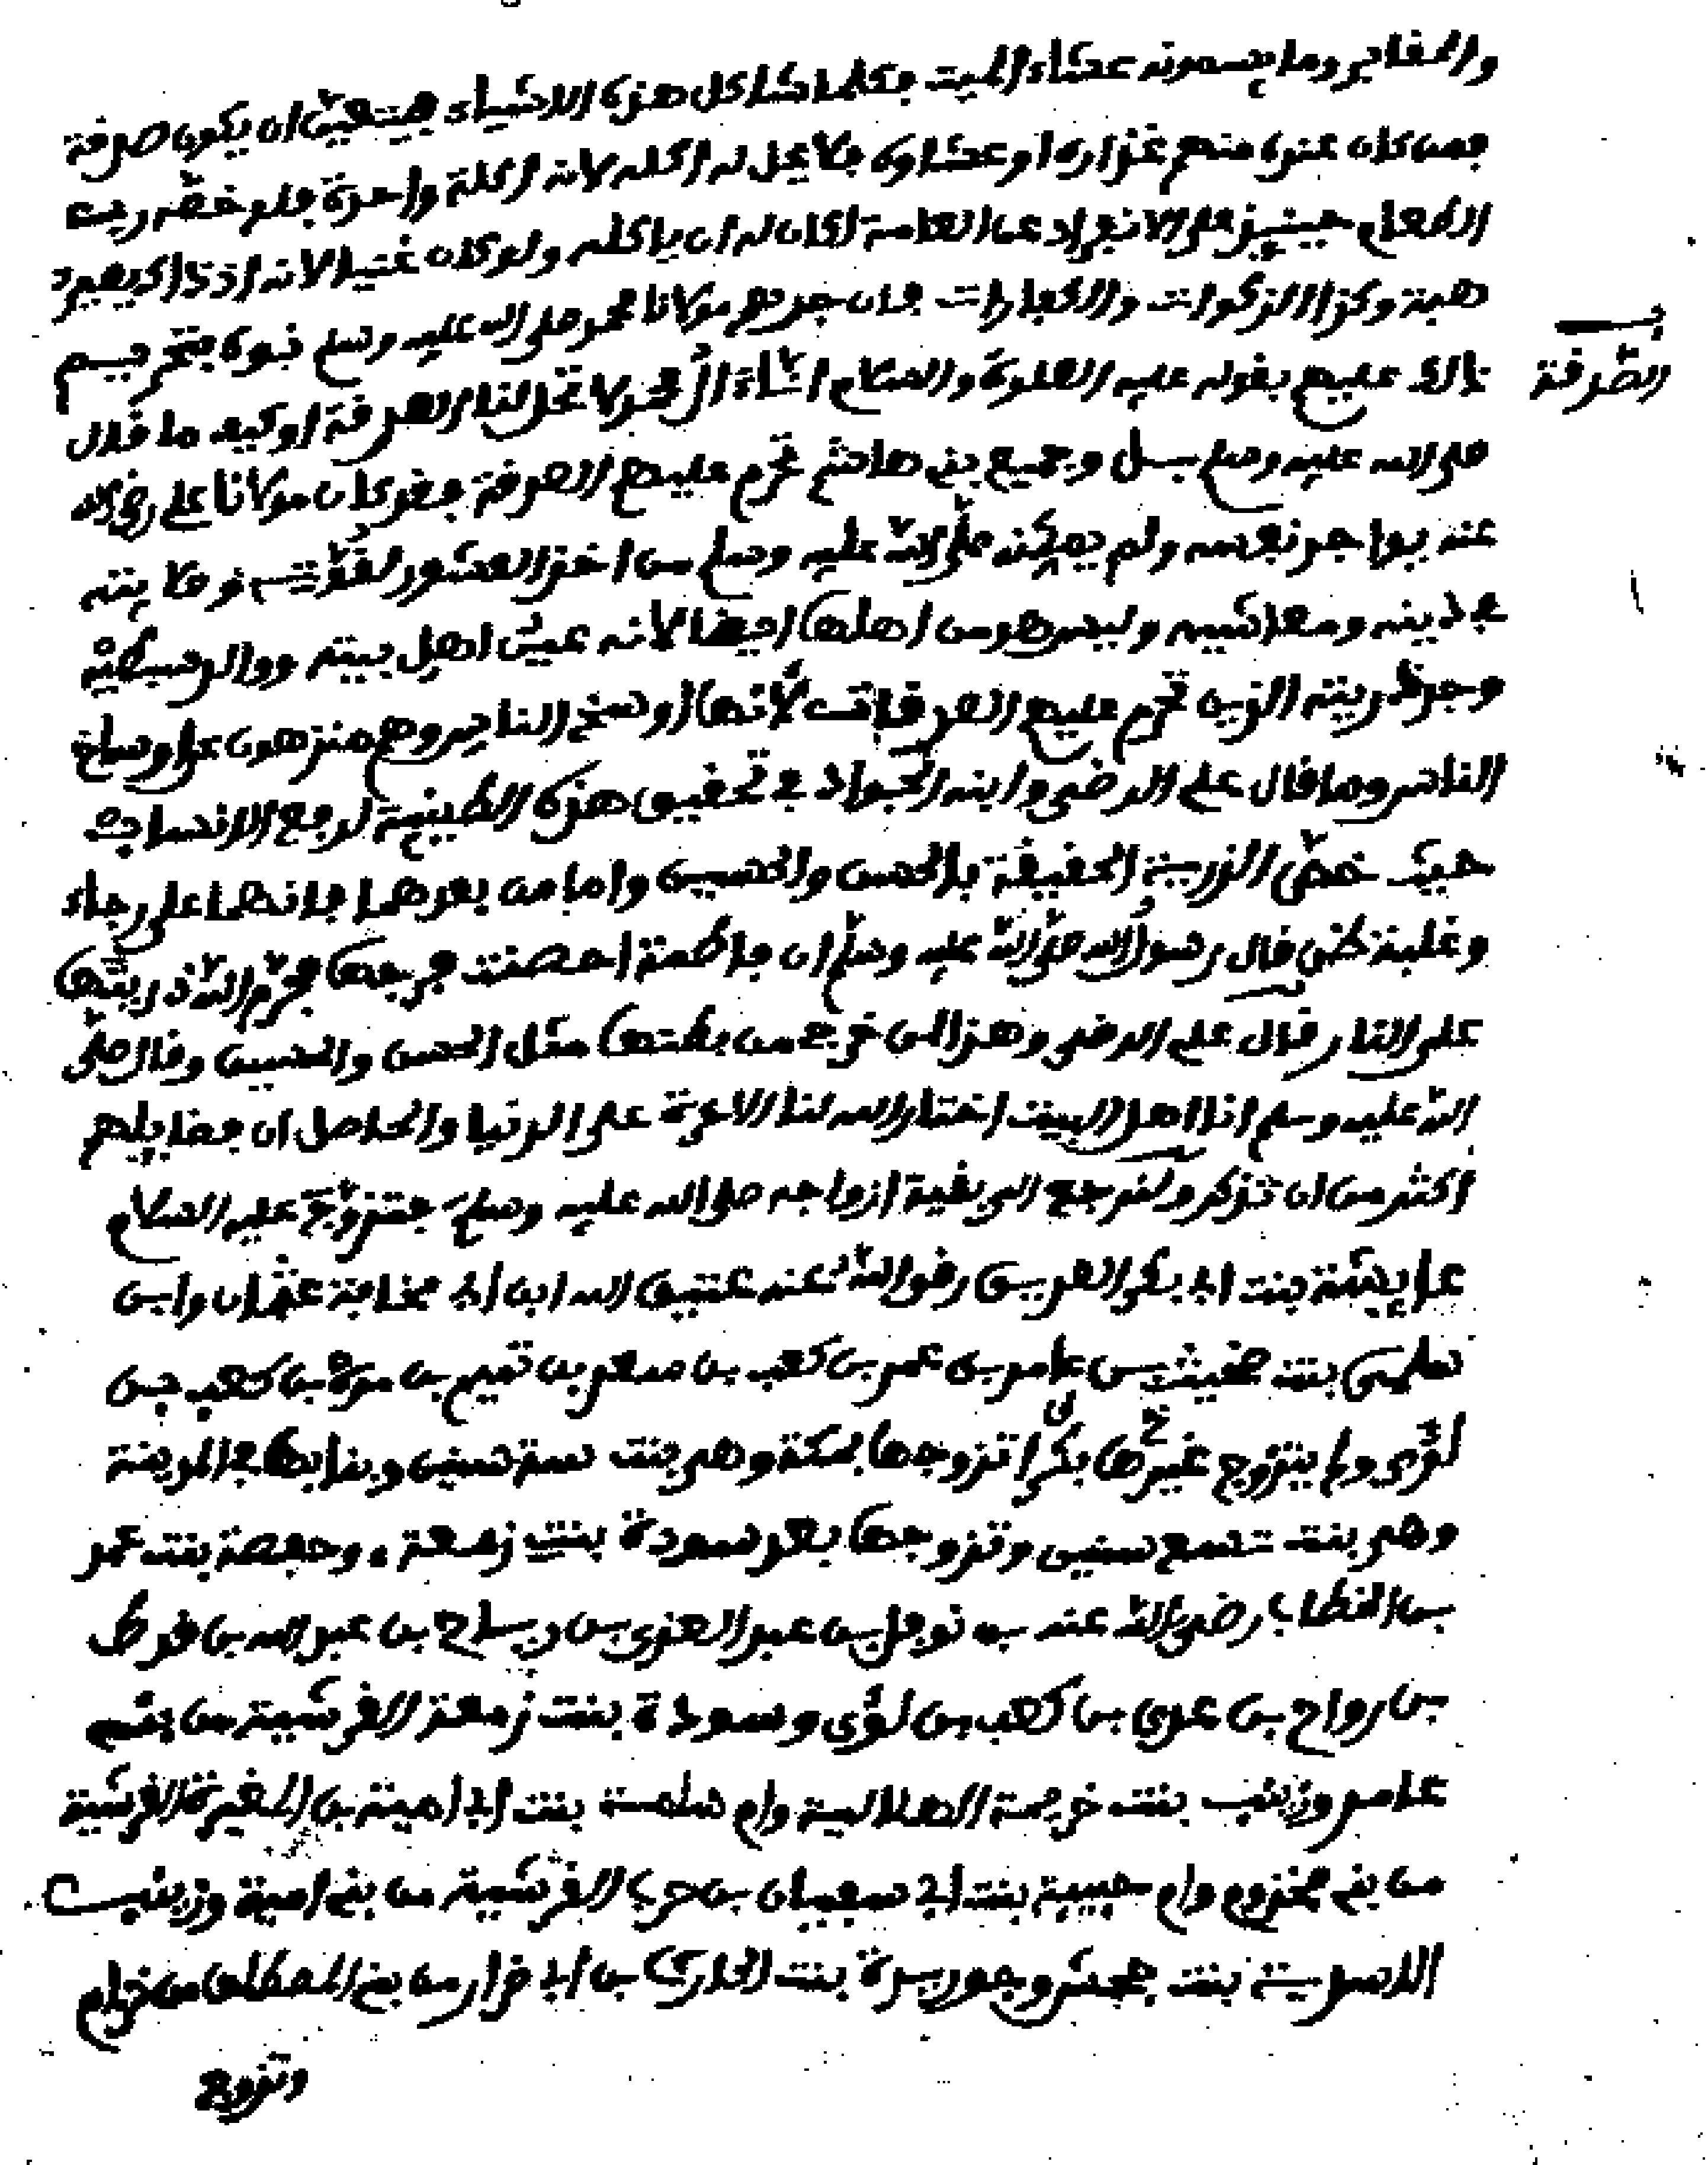 والمقابر وما يسمونه عشاء الميت فكلما شاكل هذه الاشياء فيتعين ان يكون صدقة
فمن كان عنده منهم غذاءه او عشاوه فلا يحل له اكله لانه اكلة واحدة فلو خصّه ربّ
الطعام حينيذ على الانفراد عن العامة لكان له ان ياكله ولو كان غنيا لانه اذ ذاك يصير
هبة وكذا الزكوات والكفارات فان جدهم مولانا محمد صلى الله عليه وسلم نبوه بتحريم
ذالك عليهم بقوله عليه الصلوة والسلام انّا ءال محمد لا تحل لنا الصدقة او كيف ما قال
صلى الله عليه وسلم بل وجميع بني هاشم تحرم عليهم الصدقة فقد كان مولانا علي رضي الله
عنه يواجر نفسه ولم يمكنه صلى الله عليه وسلم من اخذ العشور لقوّته وقايته
في دينه ومعاشه وليس هو من اهلها ايضا لانه عين اهل بيته ووالد سبطيه
وجد ذريته الذين تحرم عليهم الصدقات لأنها اوسخ الناس وهم منزهون عن اوساخ
الناس وما قال علي الرضي وابنه الجواد في تحقيق هذه الطينية لرفع الانساب
حيث خصّ الذرية الحقيقة بالحسن والحسين واما من بعدهما فانهما على رجاء
وغلبة ظن قال رسول الله صلى الله عليه وسلم ان فاطمة احصنت فرجها فحرّم الله ذريتها
على النار قال علي الرضي وهذا لمن خرج من بطنها مثل الحسن والحسين وقال صلى
الله عليه وسلم انا اهل البيت اختار الله لنا الاخرة على الدنيا والحاصل ان فضايلهم
اكثر من ان تذكر ولنرجع الى بقية ازواجه صلى الله عليه وسلم فتزوّج عليه السلام
عايشة بنت ابي بكر الصديق رضي الله عنه عتيق الله ابن ابي قحافة عثمان وابن
سلمى بنت صخر بن عامر بن عمر بن كعب بن سعد بن تميم بن مرة بن كعب بن
لؤي ولم يتزوج غيرها بكرا تزوجها بمكة وهي بنت ستة سنين وبنا بها في المدينة
وهي بنت تسع سنين وتزوجها بعد سودة بنت زمعة وحفصة بنت عمر
بن الخطاب رضي الله عنه بن نوفل بن عبد العزى بن رياح بن عبد الله بن قرط
بن رواح بن عدي بن كعب بن لؤي وسودة بنت زمعة القرشية من بني
عامر وزينب بنت خزيمة الهلالية وام سلمة بنت ابي امية بن المغيرة القرشية
من بني مخزوم وام حبيبة بنت ابي سفيان بن حرب القرشية من بني امية وزينب
الاسدية بنت جحش وجويرية بنت الحارث بن ابي ضرار من بني المصطلق من خزام
وتزوج
الصّدقة